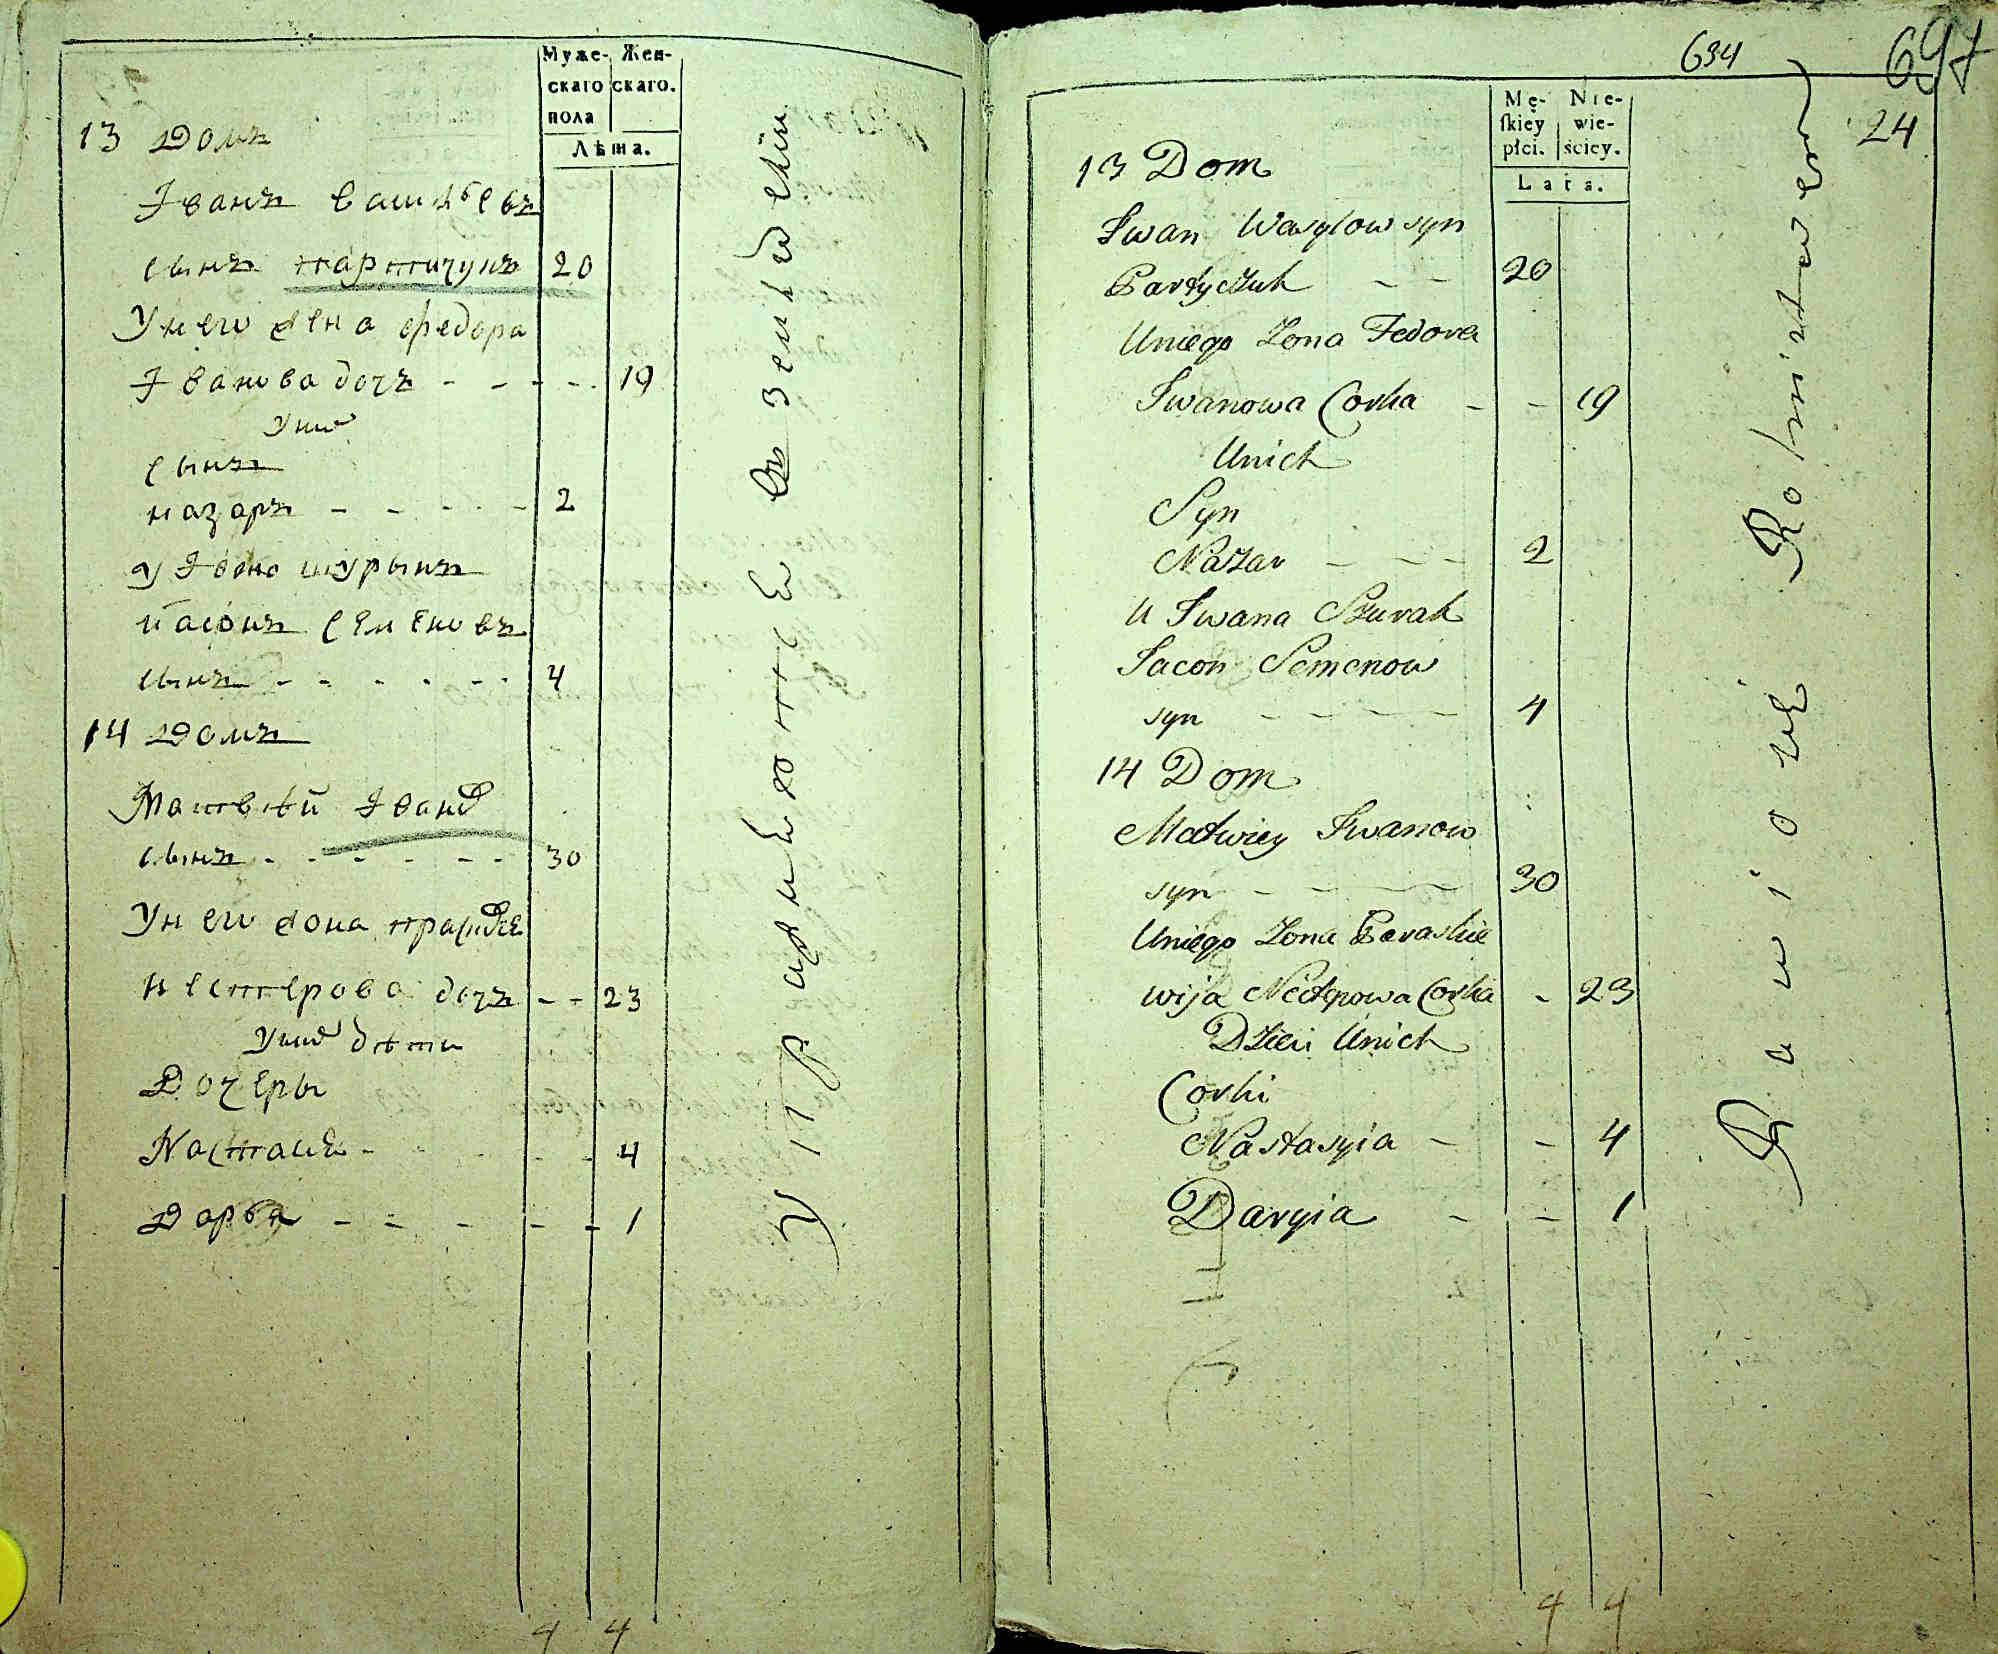 Муже- Жен-
скаго скаго.
пола
Лѣта.
13 Домъ
Іванъ Васильевъ
сынъ партичукъ 20
У него жена федора
Іванова дочъ - - - - 19
У них
сынъ
назаръ - - - - - 2
у Івана шурынъ
иасонъ семеновъ
сынъ - - - - - - 4
14 Домъ
Матвѣй Іванов
сынъ - - - - - - 30
У него жона
нестерова дочъ - - 23
У них дѣти
Дочеры
Настася - - - - - 4
Дарья - - - - - - 1
4 4
Упражняются в земледелии
634
697
24
Mę- Nie-
skiey wie-
płci. ściey.
Lata.
13 Dom
Iwan Wasylow syn
Partyczuk - - 20
Uniego Zona Fedora
Iwanowa Corka - - 19
Unich
Syn
Nazar - - - 2
U Iwana Szurak
Jacon Semenow
syn - - - - 4
14 Dom
Matwiey Iwanow
syn - - - - 30
Uniego Zona Paraskie
wija Nesterowa Corka - 23
Dzieci Unich
Corki
Nastasyia - - 4
Daryia - - 1
4 4
Rolnictwem